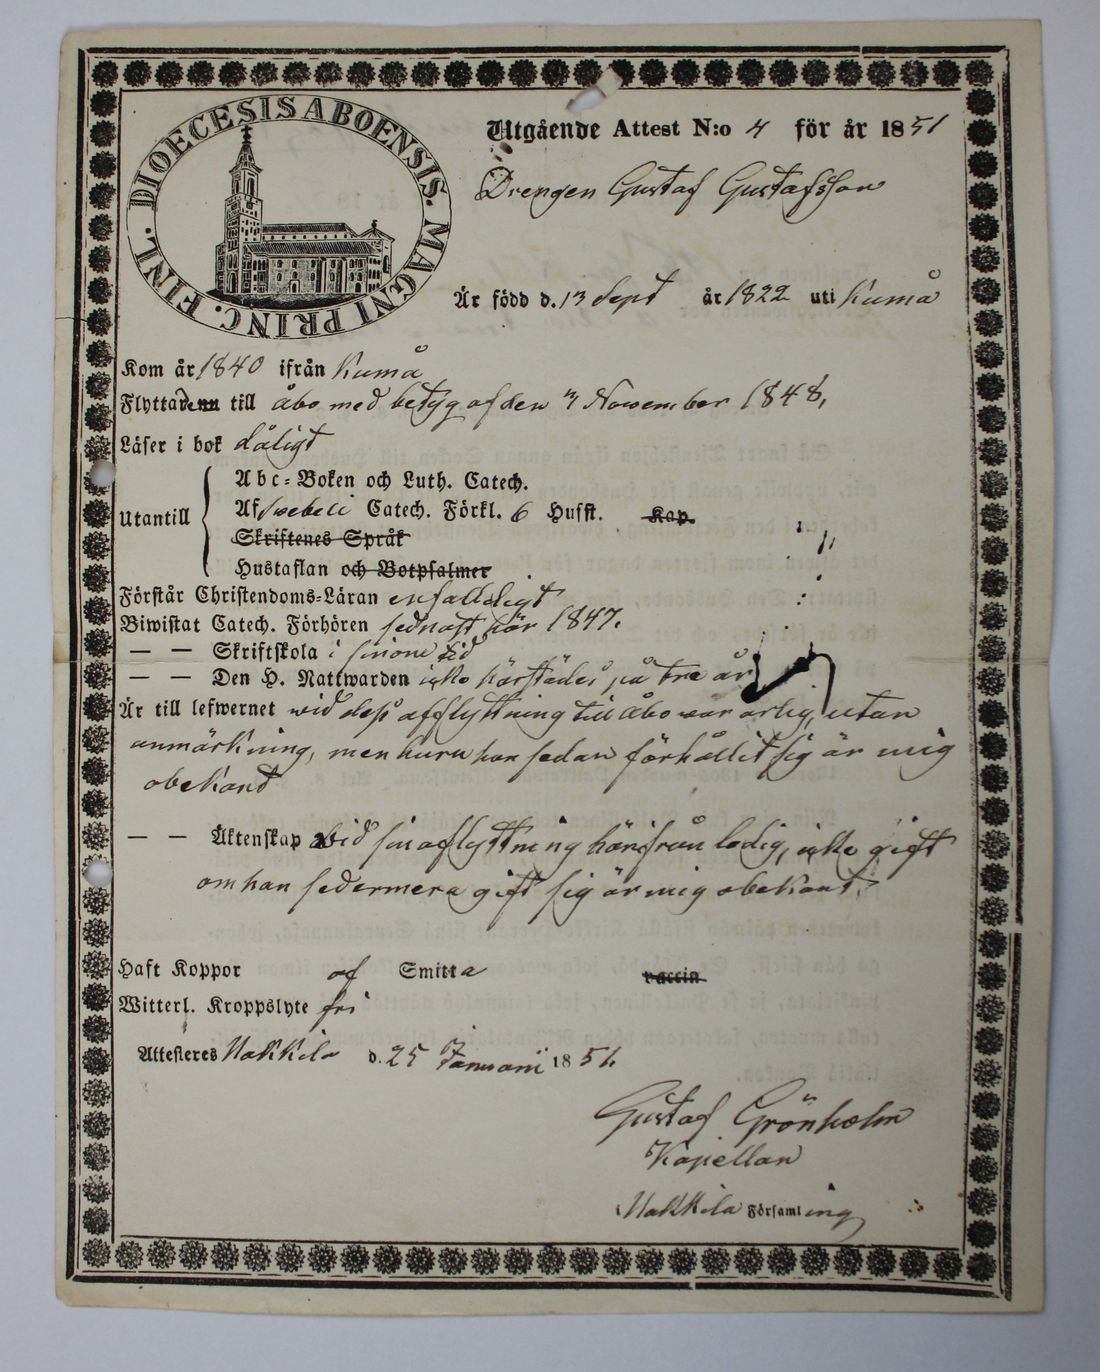 DIOECESIS ABOENSIS. MAGNI PRINC. FINL.
Utgående Attest N:o 4 för år 1851
Drengen Gustaf Gustafsson
Är född d. 13 Sept år 1822 uti Kumå
Kom år 1840 ifrån Kumå
Flyttade till Åbo med betyg af den 4 November 1848,
Läser i bok dåligt
Utantill
Abc-Boken och Luth. Catech.
Af Svebelii Catech. Förkl. 6 Husst. Kap.
Skriftenes Språk
Hustaflan och Botpsalmer
Förstår Christendoms-Läran enfaldeligt
Biwistat Catech. Förhören sednast här 1847.
— — Skriftskola i sinom tid
— — Den H. Nattwarden icke härstädes på tre år
Är till lefwernet wid dess afflyttning till Åbo war ärlig, utan
anmärkning, men huru han sedan förhållit sig är mig
obekant
— — Äktenskap wid sin aflyttning härifrån ledig, icke gift
om han sedermera gift sig är mig obekant.
Haft Koppor af Smitta vaccin
Witterl. Kroppslyte fri
Attesteres Nakkila d. 25 Januarii 1851.
Gustaf Grönholm
Kapellan
i Nakkila Församling